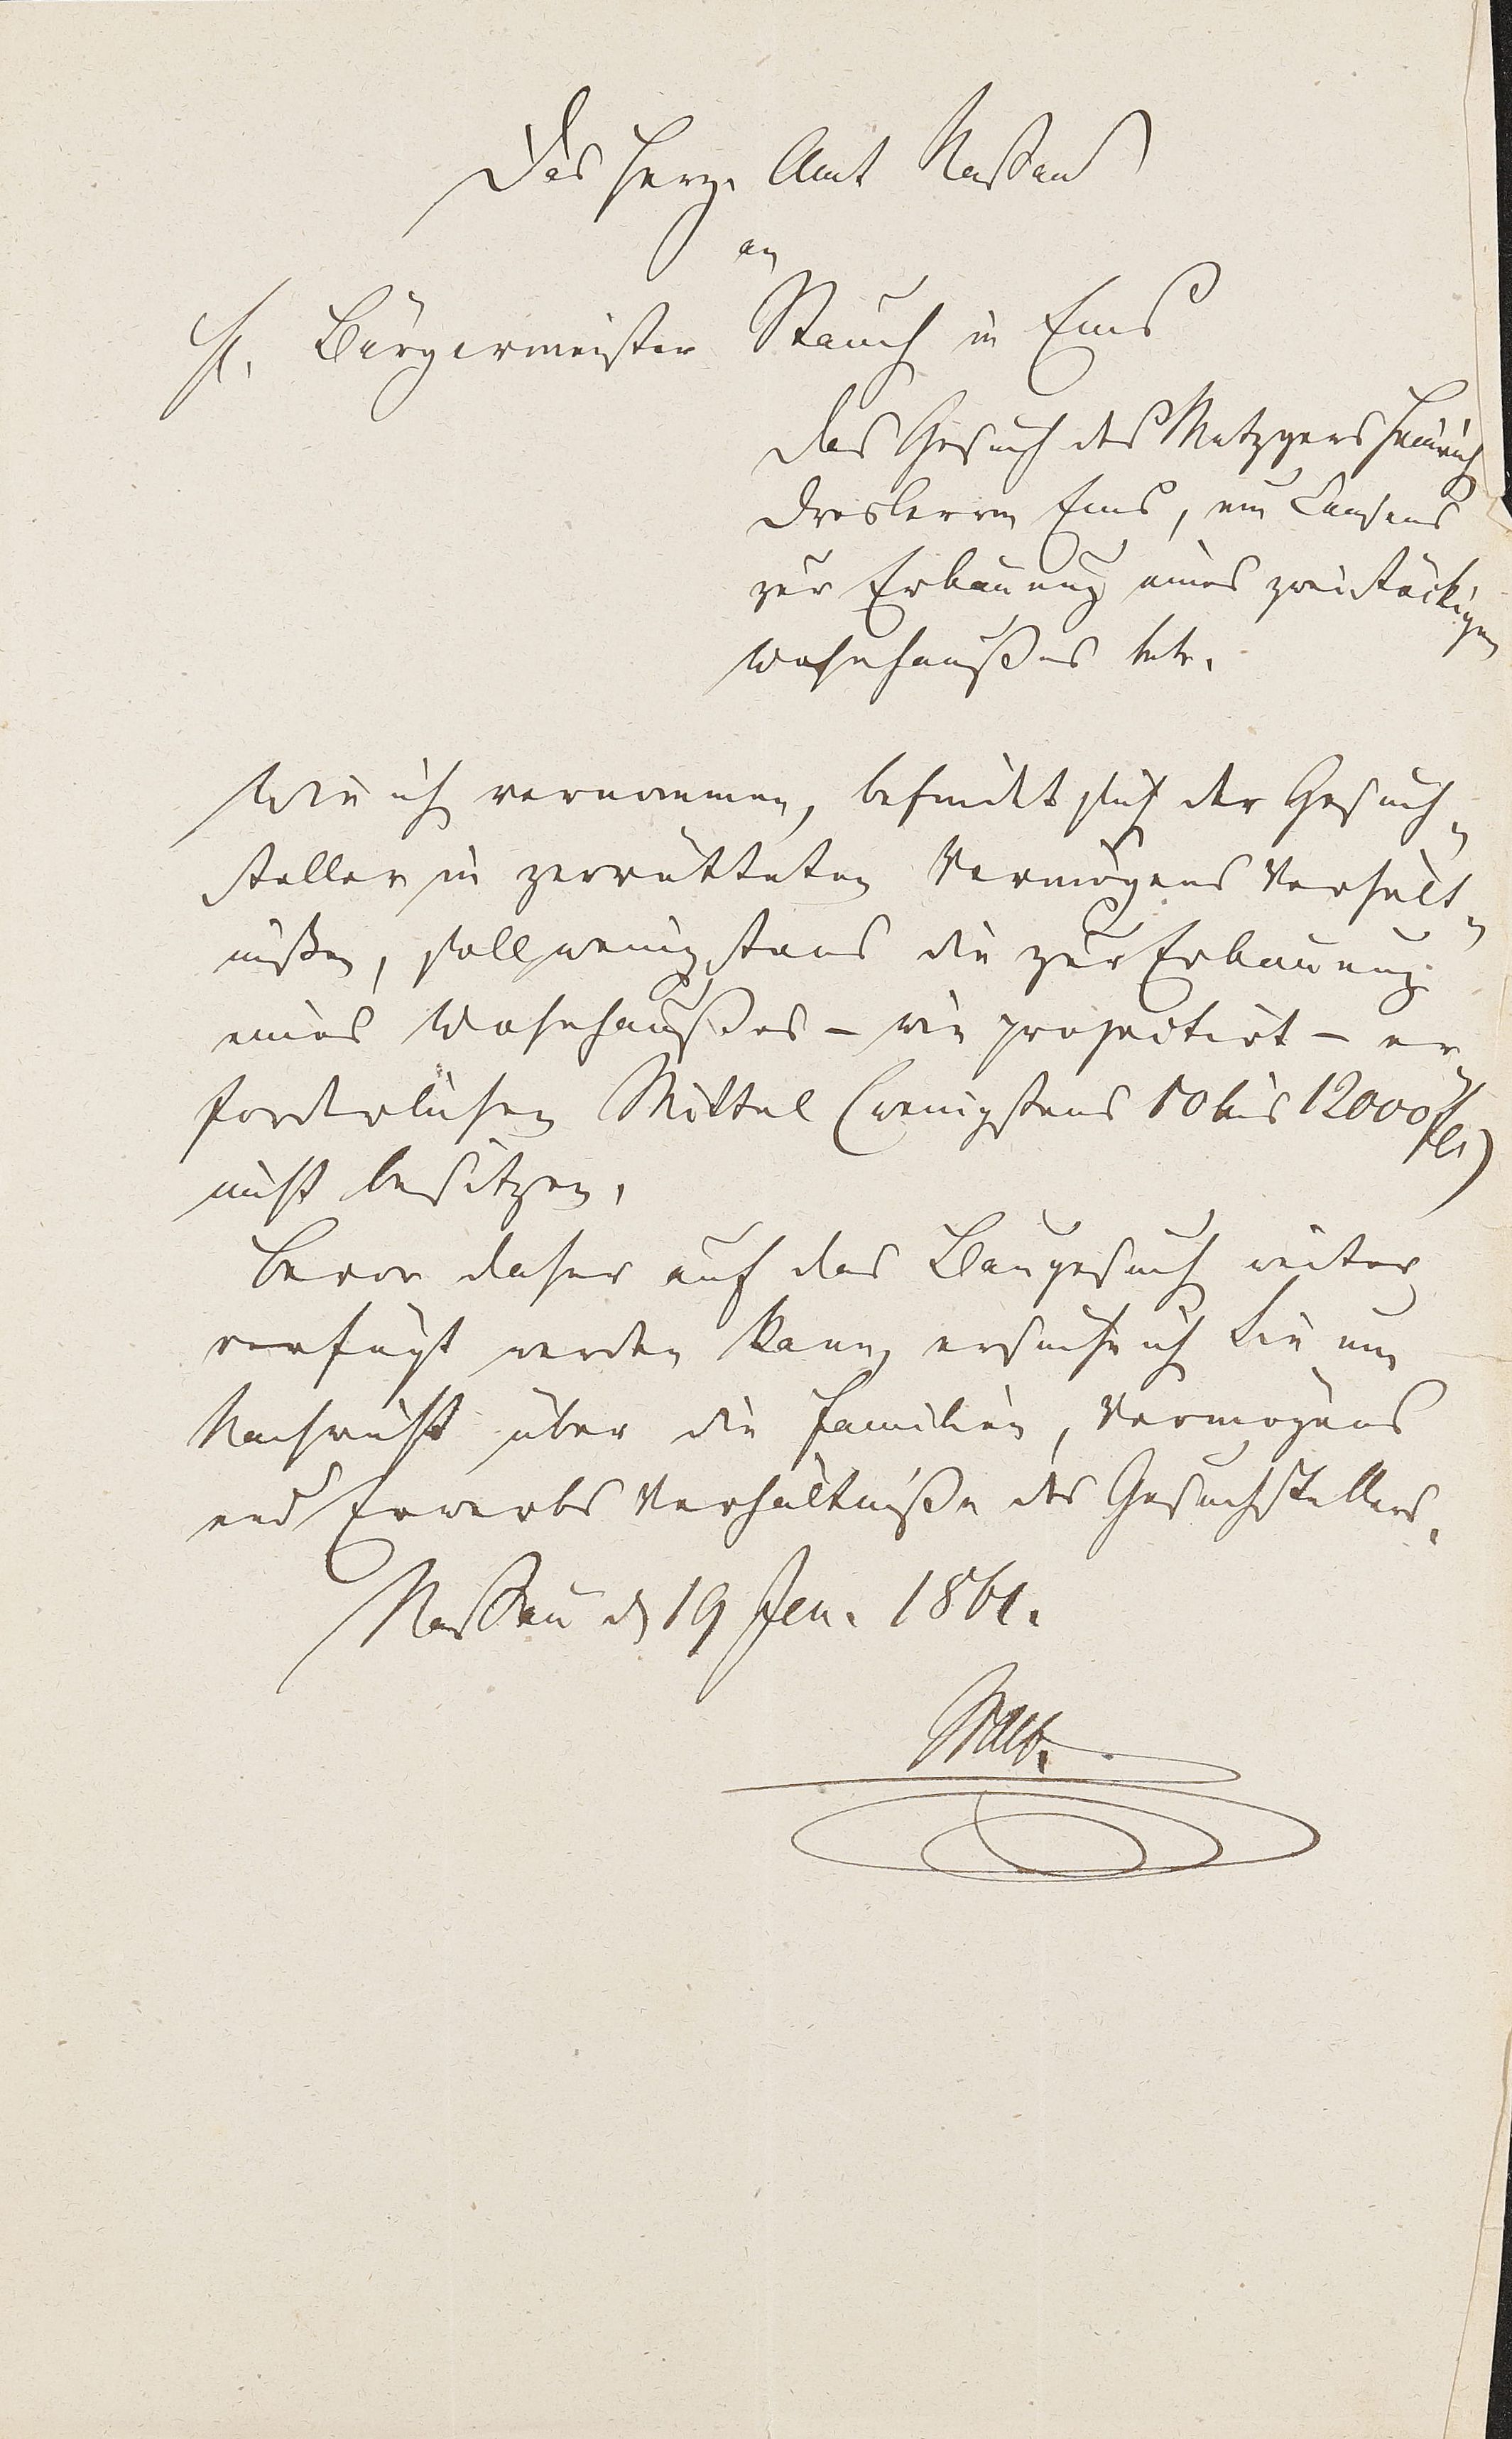 Das Herz. Amt Nassau
an
H. Bürgermeister Stauch in Ems
Das Gesuch des Metzgers Heinrich
Dresler in Ems, um Consens
zur Erbauung eines zweistöckigen
Wohnhaußes betr.
Wie ich vernommen, befindet sich der Gesuch-
steller in zerrütteten Vermögens Verhält-
nißen, soll wenigstens die zur Erbauung
eines Wohnhaußes – wie projectirt – er-
forderlichen Mittel (wenigstens 10 bis 12000 fl.)
nicht besitzen.
Bevor daher auf das Baugesuch weiter
verfügt werden kann, ersuche ich Sie um
Nachricht über die Familien, Vermögens
und Erwerbs Verhältniße des Gesuchstellers.
Nassau d 19 Jan. 1861.